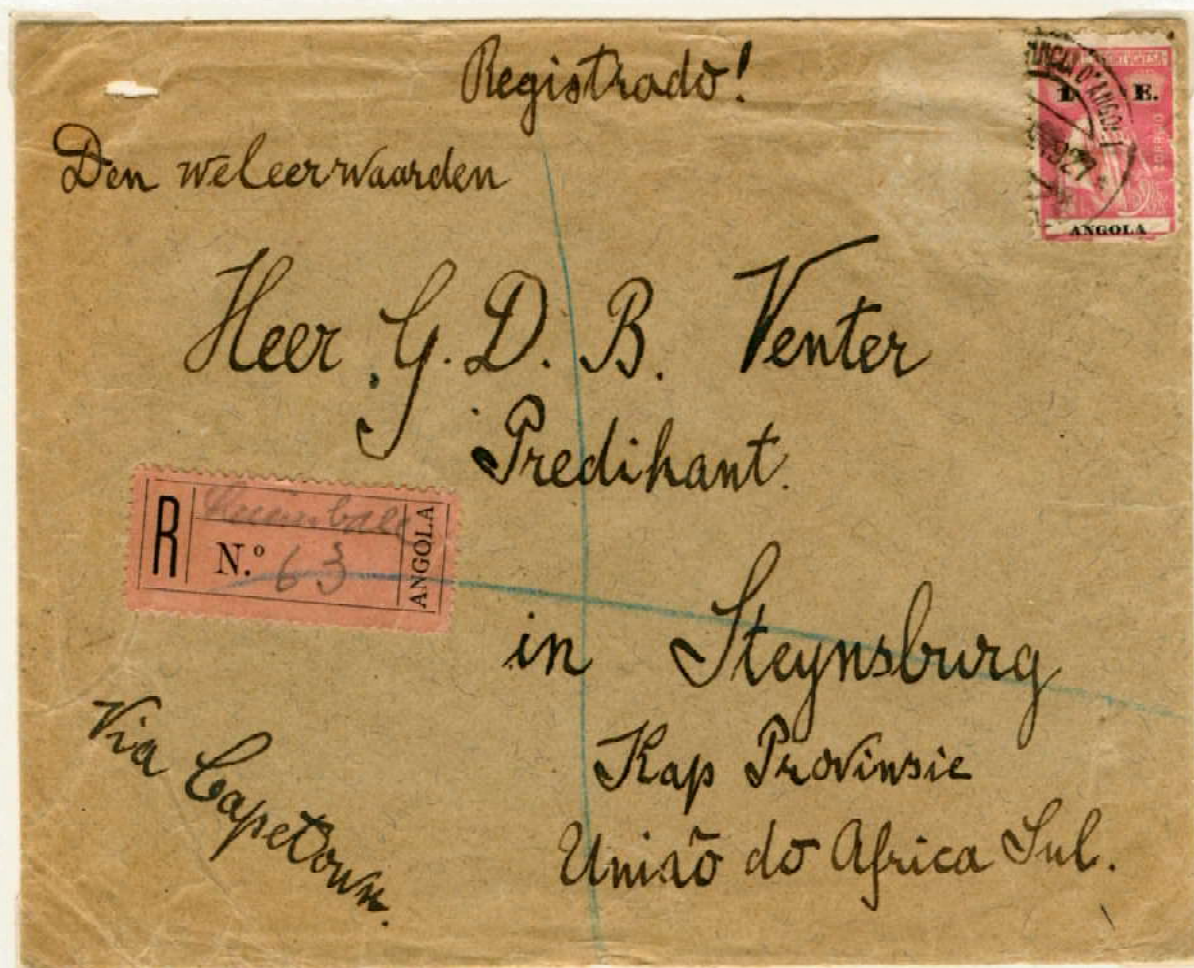 Registrado!
Den weleerwaarden
Heer G. D. B. Venter
Predikant.
in Steynsburg
Kap Provinsie
União do Africa Sul.
Via Capetown.
R
N.º 63
ANGOLA
1 E.
CORREIO
ANGOLA
D'ANGOLA
1927